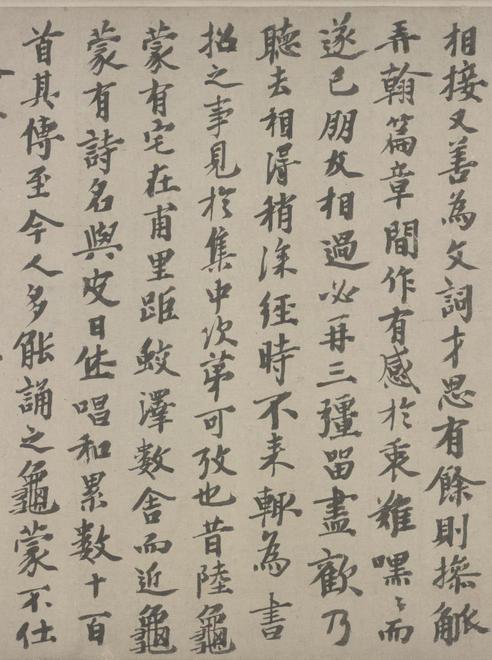 相接又善為文詞才思有餘則操觚
弄翰篇章間作有感於衷難嘿々而
遂已朋友相過必再三彊留盡歡乃
聽去相得稍深經時不来輒為書
招之事見於集中次第可攷也昔陸龜
蒙有宅在甫里距鮫澤數舍而近龜
蒙有詩名與皮日休唱和累數十百
首其傳至今人多能誦之龜蒙不仕